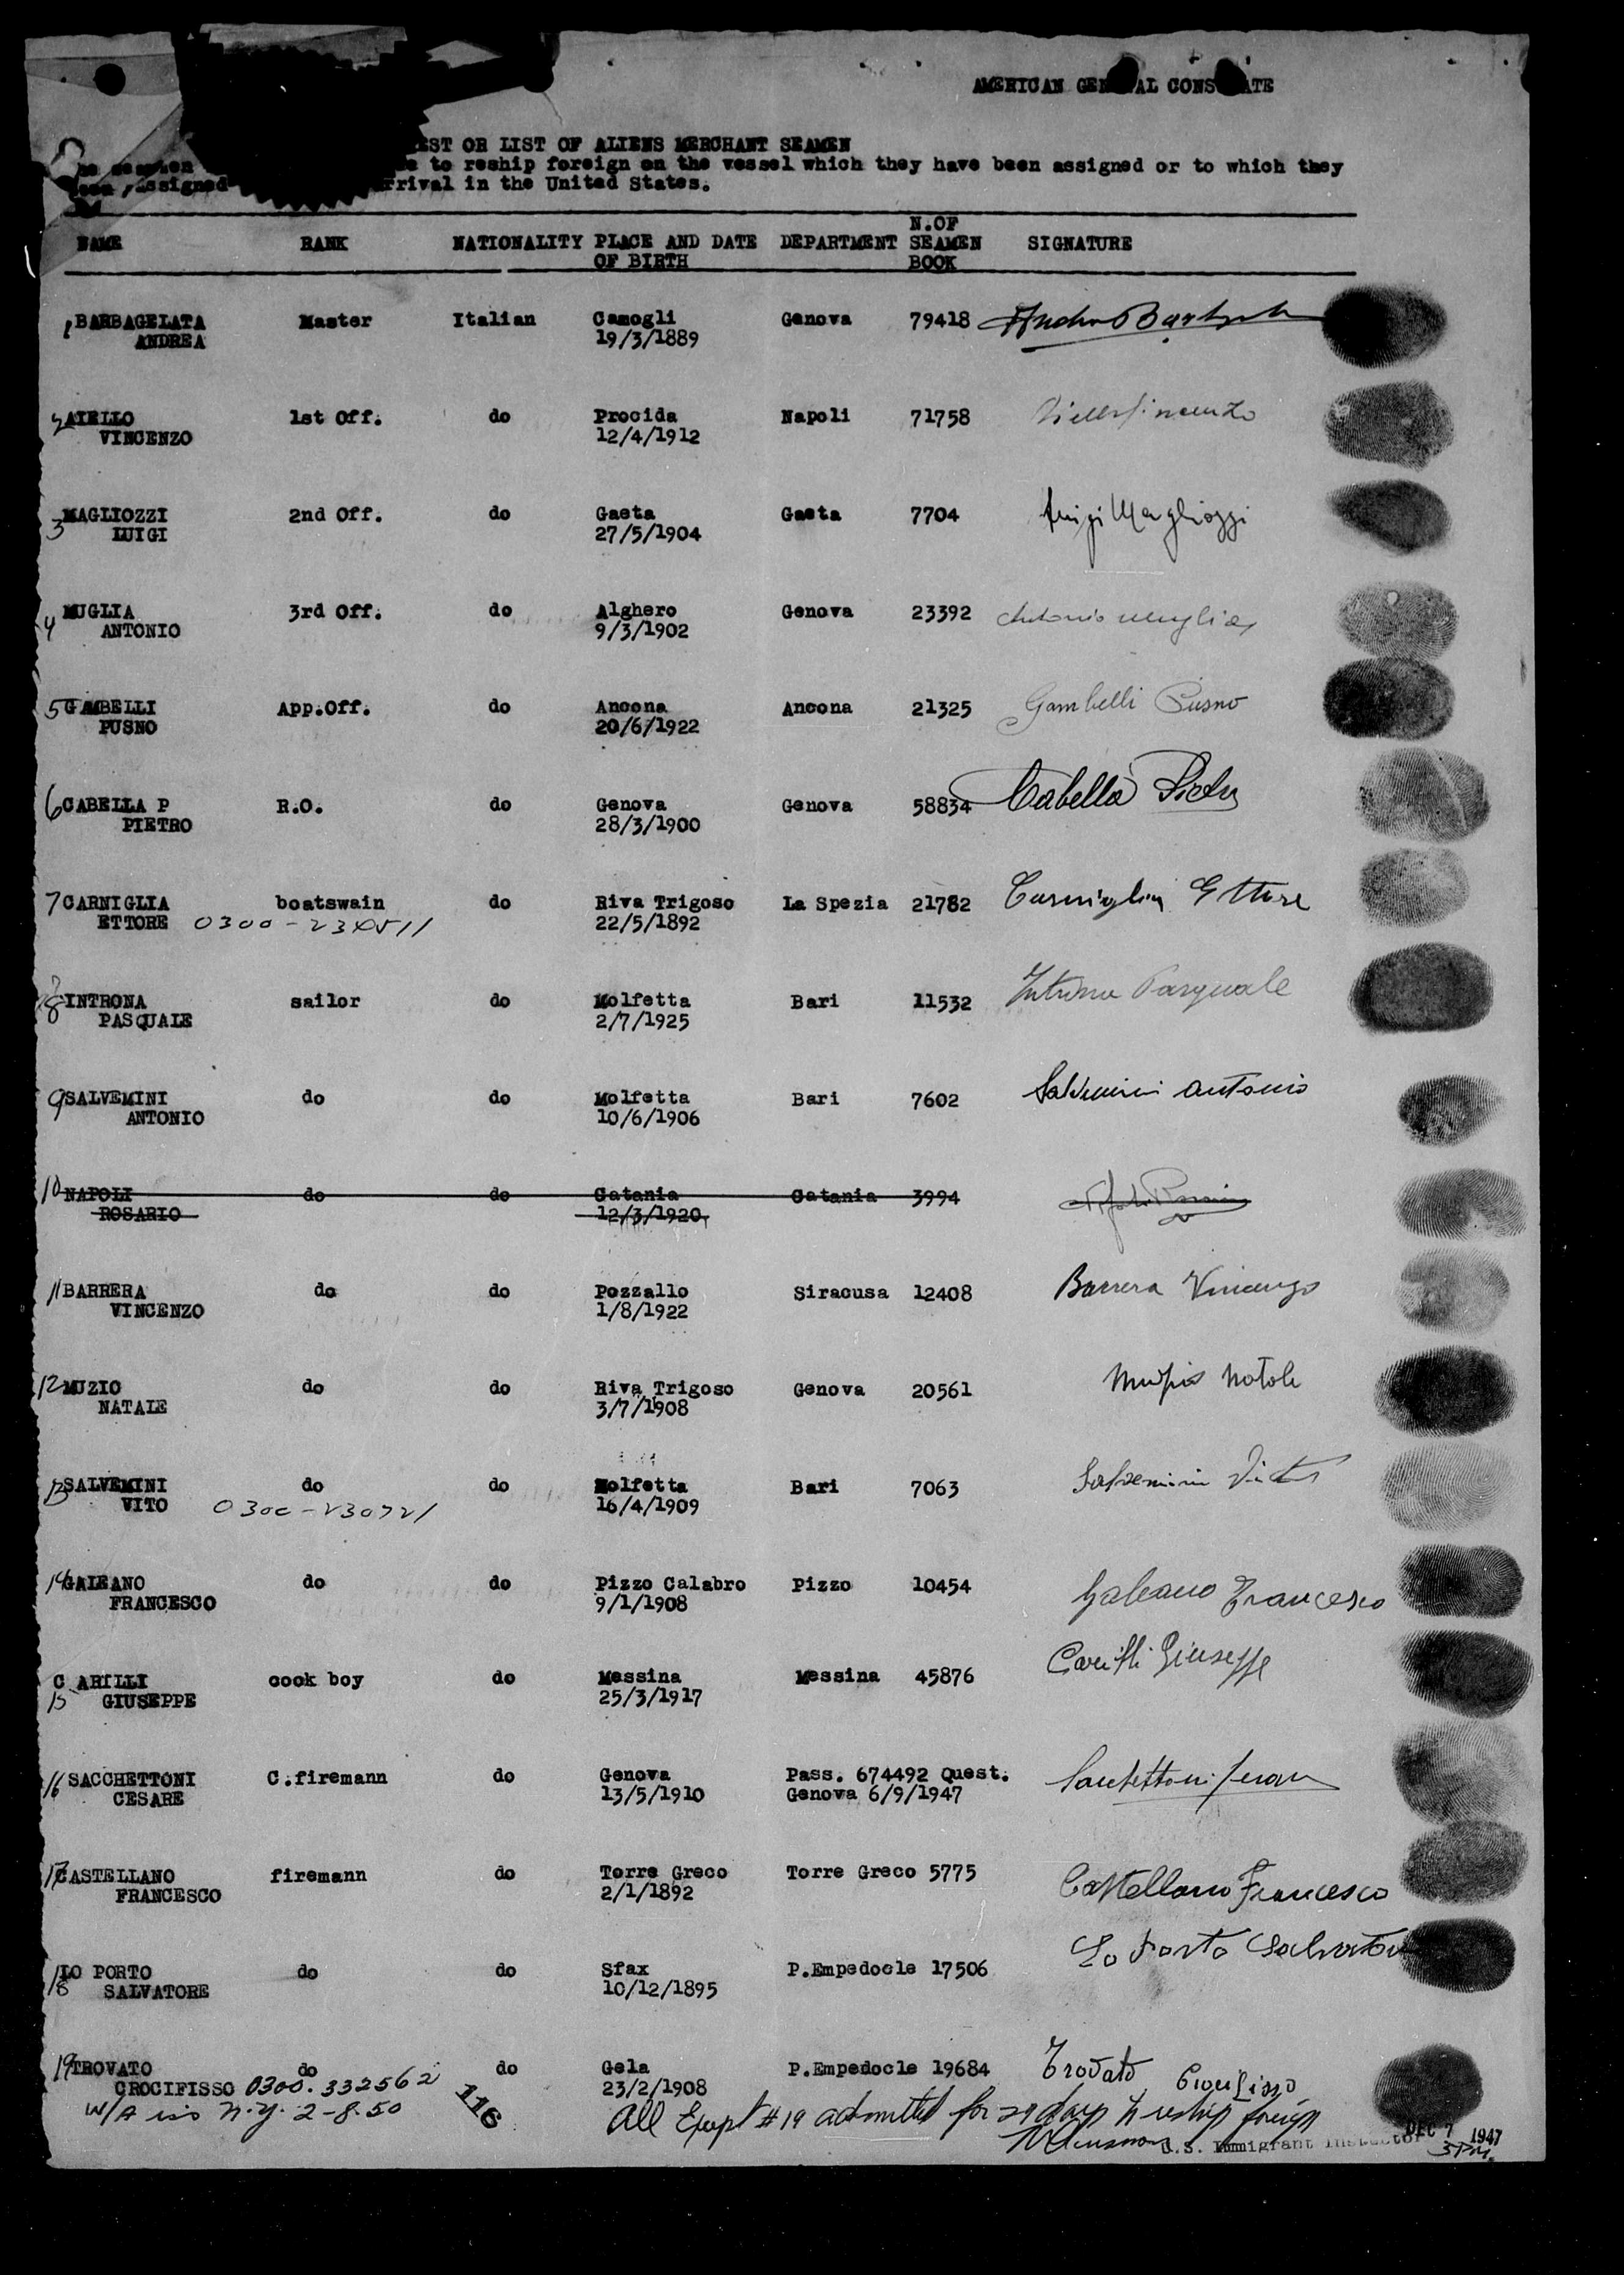 AMERICAN GENERAL CONSULATE
EST OR LIST OF ALIENS MERCHANT SEAMEN
to reship foreign on the vessel which they have been assigned or to which they
assigned rrival in the United States.
NAME RANK NATIONALITY PLACE AND DATE OF BIRTH DEPARTMENT N.OF SEAMEN BOOK SIGNATURE
1 BARBAGELATA Master Italian Camogli Genova 79418
ANDREA 19/3/1889
2 AIELLO 1st Off. do Procida Napoli 71758
VINCENZO 12/4/1912
3 MAGLIOZZI 2nd Off. do Gaeta Gaeta 7704 Luigi Magliozzi
LUIGI 27/5/1904
4 MUGLIA 3rd Off. do Alghero Genova 23392 Antonio Muglia
ANTONIO 9/3/1902
5 GAMBELLI App.Off. do Ancona Ancona 21325 Gambelli Pusno
PUSNO 20/6/1922
6 CABELLA P R.O. do Genova Genova 58834 Cabella Pietro
PIETRO 28/3/1900
7 CARNIGLIA boatswain do Riva Trigoso La Spezia 21782 Carniglia Ettore
ETTORE 22/5/1892
8 INTRONA sailor do Molfetta Bari 11532 Introna Pasquale
PASQUALE 2/7/1925
9 SALVEMINI do do Molfetta Bari 7602 Salvemini Antonio
ANTONIO 10/6/1906
10 NAPOLI do do Catania Catania 3994
ROSARIO 12/3/1920
11 BARRERA do do Pozzallo Siracusa 12408 Barrera Vincenzo
VINCENZO 1/8/1922
12 MUZIO do do Riva Trigoso Genova 20561 Muzio Natale
NATALE 3/7/1908
13 SALVEMINI do do Molfetta Bari 7063 Salvemini Vito
VITO 0300-230721 16/4/1909
14 GALEANO do do Pizzo Calabro Pizzo 10454 Galeano Francesco
FRANCESCO 9/1/1908
C ARILLI cook boy do Messina Messina 45876 Carilli Giuseppe
15 GIUSEPPE 25/3/1917
16 SACCHETTONI C.firemann do Genova Pass. 674492 Quest. Sacchettoni Cesare
CESARE 13/5/1910 Genova 6/9/1947
17 CASTELLANO firemann do Torre Greco Torre Greco 5775 Castellano Francesco
FRANCESCO 2/1/1892
18 LO PORTO do do Sfax P.Empedocle 17506 Lo Porto Salvatore
SALVATORE 10/12/1895
19 TROVATO do do Gela P.Empedocle 19684 Trovato Crocifisso
CROCIFISSO 0300.332562 23/2/1908
W/A in N.Y. 2-8-50 116 All Except #19 admitted for 29 days to reship foreign
U.S. Immigrant Inspector DEC 7 1947
3 P.M.